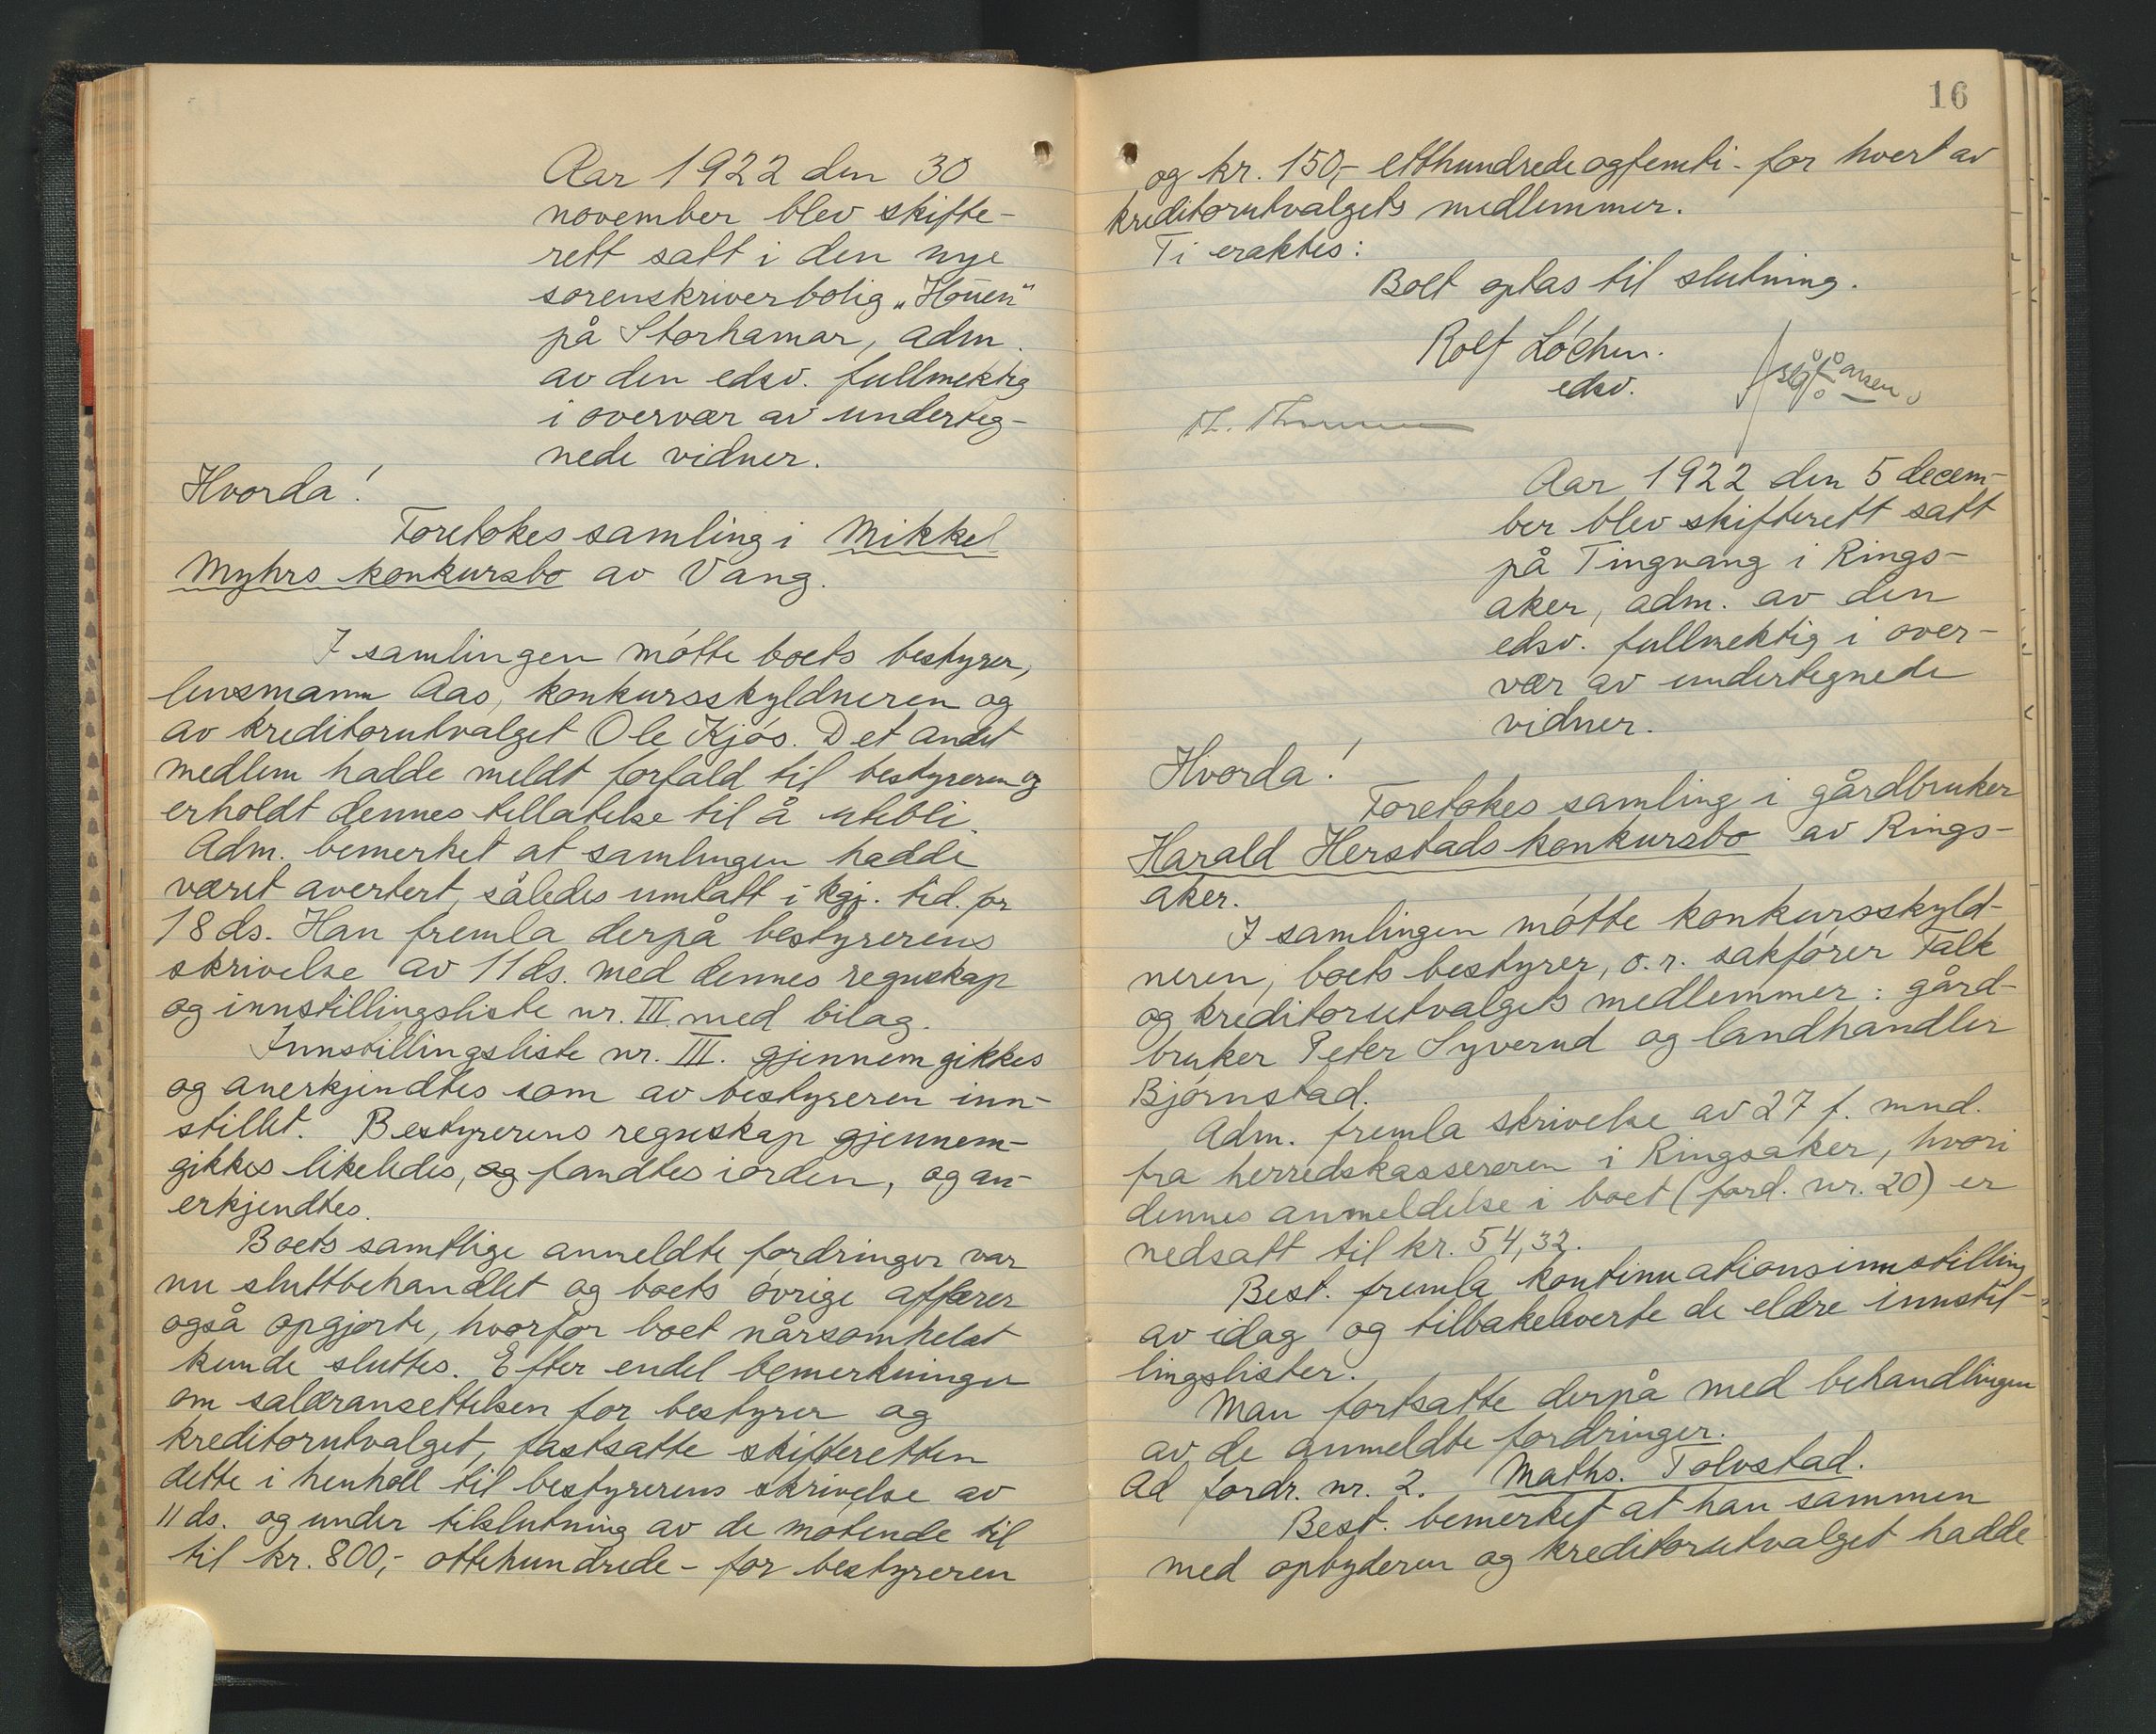 Aar 1922 den 30
november blev skifte-
rett satt i den nye
sorenskriverbolig „Höuen"
på Storhamar, adm.
av den edsv. fullmektig
i overvær av underteg-
nede vidner.
Hvorda!
Foretokes samling i Mikkel
Myhrs konkursbo av Vang.
I samlingen møtte boets bestyrer,
lensmann Aas, konkursskyldneren og
av kreditorutvalget Ole Kjøs. Det andet
medlem hadde meldt forfald til bestyreren og
erholdt dennes tillatelse til å utebli.
Adm. bemerket at samlingen hadde
været avertert, således inntatt i kgj. tid. for
18 ds. Han fremla derpå bestyrerens
skrivelse av 11 ds. med dennes regnskap
og innstillingsliste nr. III. med bilag.
Innstillingsliste nr. III. gjennemgikkes
og anerkjendtes som av bestyreren inn-
stillet. Bestyrerens regnskap gjennem-
gikkes likeledes, og fandtes iorden, og an-
erkjendtes.
Boets samtlige anmeldte fordringer var
nu sluttbehandlet og boets øvrige affærer
også opgjorte, hvorfor boet nårsomhelst
kunde sluttes. Efter endel bemerkninger
om salæransettelsen for bestyrer og
kreditorutvalget, fastsatte skifteretten
dette i henholl til bestyrerens skrivelse av
11 ds. og under tilslutning av de møtende til
til kr. 800,- ottehundrede - for bestyreren
16
og kr. 150,- etthundredeogfemti - for hvert av
kreditorutvalgets medlemmer.
Ti eraktes:
Boet optas til slutning.
Rolf Løchen.
edsv.
Aar 1922 den 5 decem-
ber blev skifterett satt
på Tingvang i Rings-
aker, adm. av den
edsv. fullmektig i over-
vær av undertegnede
vidner.
Hvorda!
Foretokes samling i gårdbruker
Harald Herstads konkursbo av Rings-
aker.
I samlingen møtte konkursskyld-
neren, boets bestyrer, o.r. sakfører Falk
og kreditorutvalgets medlemmer: gård-
bruker Peter Syverud og landhandler
Bjørnstad.
Adm. fremla skrivelse av 27 f. mnd.
fra herredskassereren i Ringsaker, hvori
dennes anmeldelse i boet (ford. nr. 20) er
nedsatt til kr. 54,32.
Best. fremla kontinuationsinnstilling
av idag og tilbakeleverte de eldre innstil-
lingslister.
Man fortsatte derpå med behandlingen
av de anmeldte fordringer.
Ad fordr. nr. 2. Maths. Tolvstad.
Best. bemerket at han sammen
med opbyderen og kreditorutvalget hadde